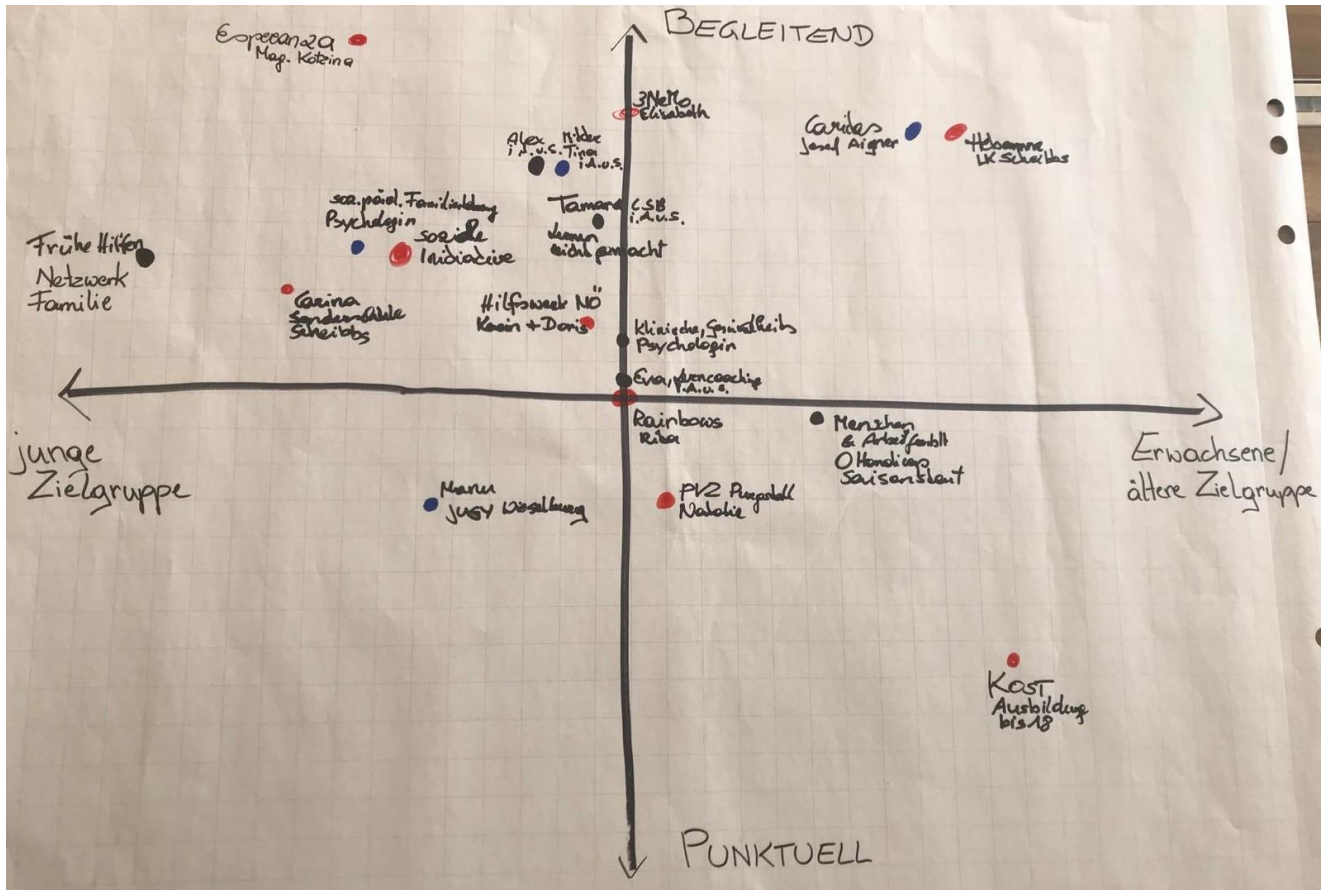 BEGLEITEND
Esperanza
Mag. Kotzina
3NeMo
Elisabeth
Caritas
Josef Aigner
Hebamme
LK Scheibbs
Alex
i.A.u.s.
Tina
i.A.u.s.
soz. päd. Familien
Psychologin
soziale
Initiative
Tamara CSB
i.A.u.s.
leicht gemacht
Frühe Hilfen
Netzwerk
Familie
Carina
Sonderschule
Scheibbs
Hilfswerk NÖ
Karin + Doris
Klinische, Gesundheits
Psychologin
Eva,
i.A.u.s.
Rainbows
Menschen
& Arbeit GmbH
0 Handicap
junge
Zielgruppe
Erwachsene/
ältere Zielgruppe
Manu
JUSY Wieselburg
PVZ Purgstall
Natalie
KOST
Ausbildung
bis 18
PUNKTUELL